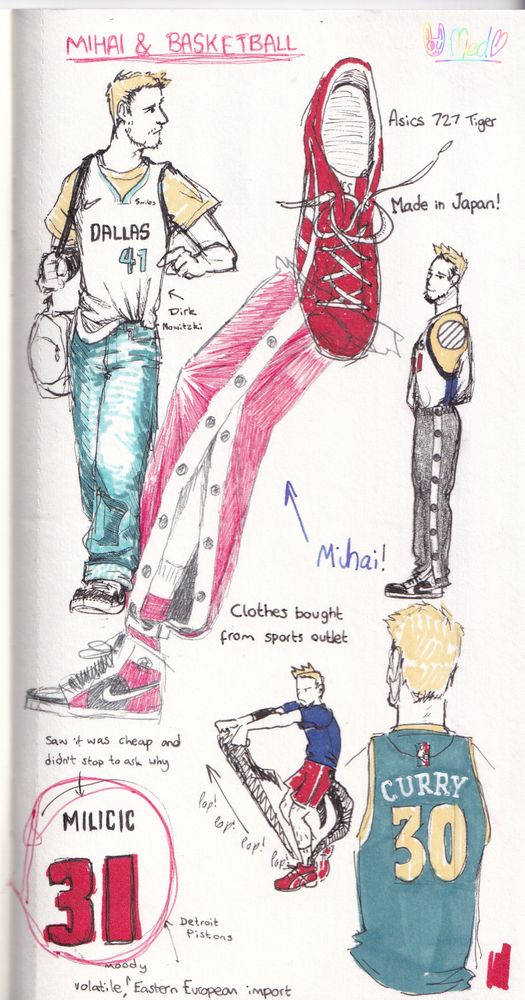 MIHAI & BASKETBALL
Med
Asics 727 Tiger
Made in Japan!
Smiles
DALLAS
41
Dirk
Nowitzki
Mihai!
Clothes bought
from sports outlet
Saw it was cheap and
didn't stop to ask why
MILICIC
31
Pop!
Pop!
Pop!
Pop!
CURRY
30
Detroit
Pistons
moody
volatile, Eastern European import